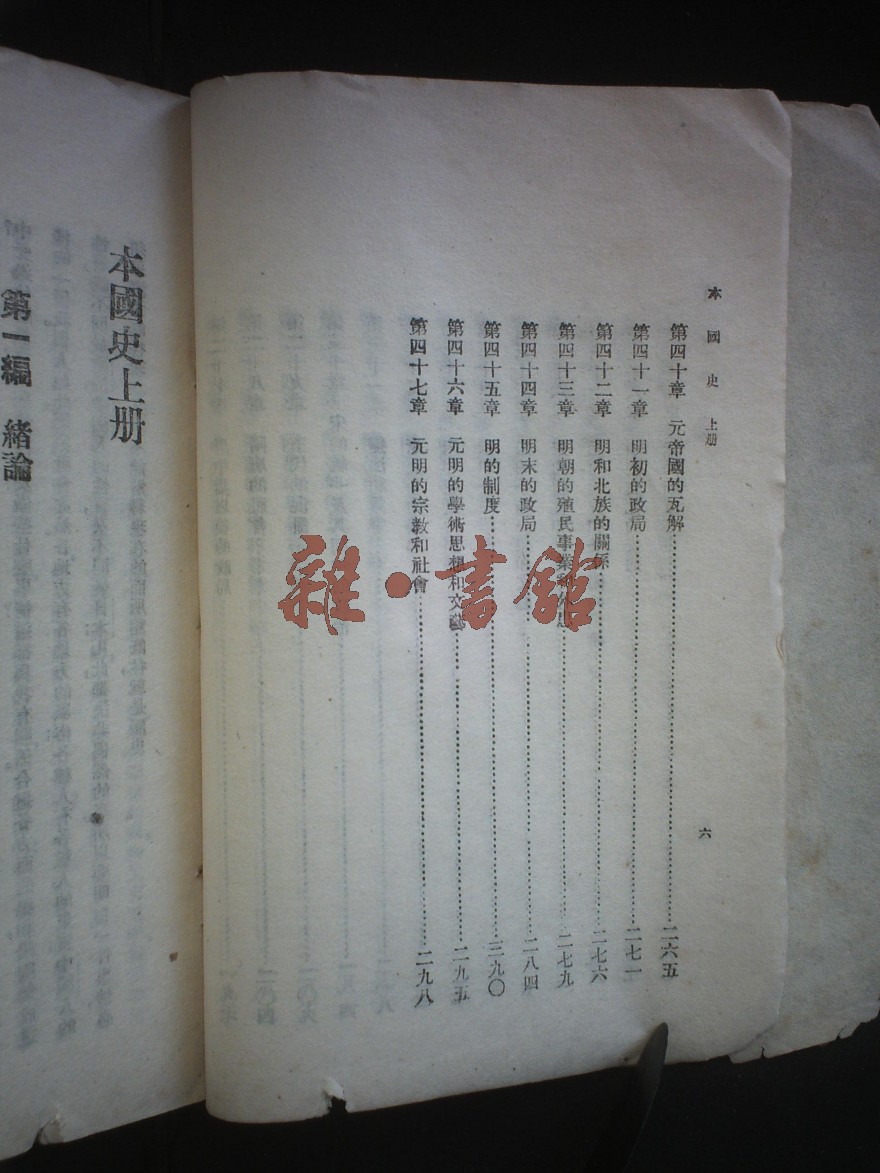 本國史 上册
第四十章 元帝國的瓦解……二六五
第四十一章 明初的政局……二七一
第四十二章 明和北族的關係……二七六
第四十三章 明朝的殖民事業……二七九
第四十四章 明末的政局……二八四
第四十五章 明的制度……三九〇
第四十六章 元明的學術思想和文藝……二九五
第四十七章 元明的宗教和社會……二九八
六
本國史上册
第一編 緒論
雜·書館